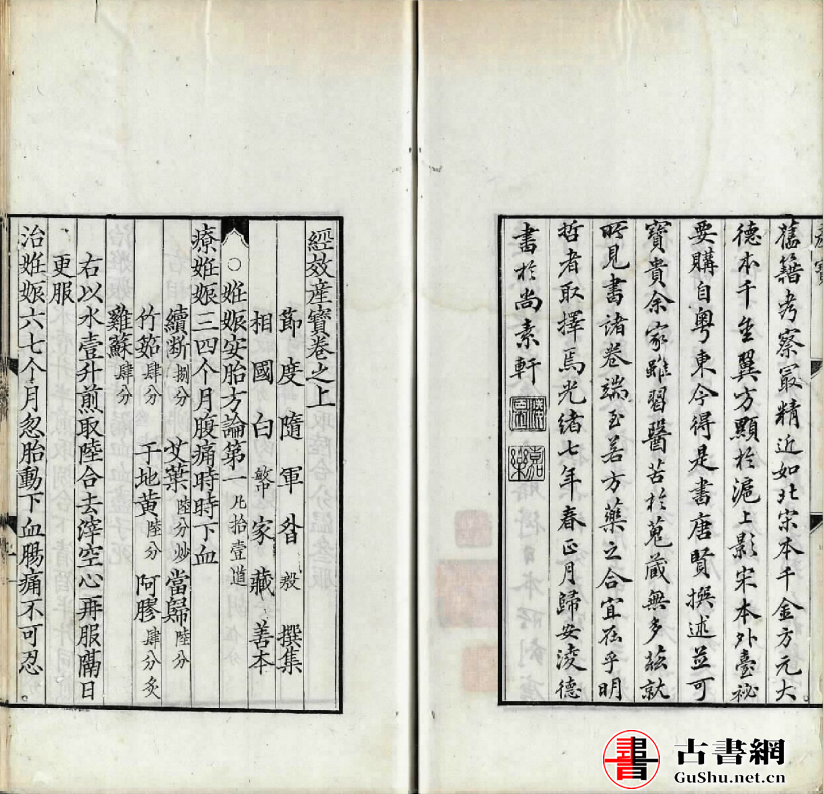 舊籍考察最精近如北宋本千金方元大
德本千金翼方顯於滬上影宋本外臺祕
要購自粵東今得是書唐賢撰述並可
寶貴余家雖習醫苦於蒐藏無多茲就
所見書諸卷端至若方藥之合宜在乎明
哲者取擇焉光緒七年春正月歸安淩德
書於尚素軒
經效產寶卷之上
節度隨軍昝殷撰集
相國白敏中家藏善本
○妊娠安胎方論第一凡拾壹道
療妊娠三四个月腹痛時時下血
續斷捌分 艾葉陸分炒 當歸陸分
竹筎肆分 干地黃陸分 阿膠肆分炙
雞蘇肆分
右以水壹升煎取陸合去滓空心再服隔日
更服
治妊娠六七个月忽胎動下血腸痛不可忍
古書網
GuShu.net.cn